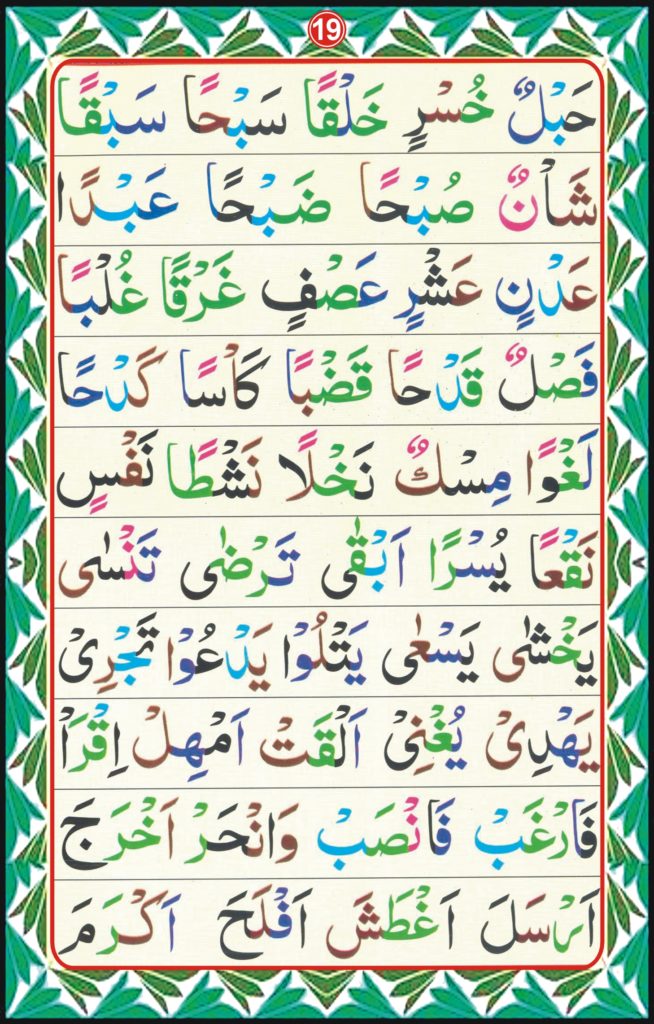 19
حَبْلٌ خُسْرٍ خَلْقًا سَبْحًا سَبْقًا
شَاْنٌ صُبْحًا ضَبْحًا عَبْدًا
عَدْنٍ عَشْرٍ عَصْفٍ غَرْقًا غُلْبًا
فَصْلٌ قَدْحًا قَضْبًا كَاْسًا كَدْحًا
لَغْوًا مِسْكٌ نَخْلًا نَشْطًا نَفْسٍ
نَقْعًا يُسْرًا اَبْقٰى تَرْضٰى تَنْسٰى
يَخْشٰى يَسْعٰى يَتْلُوْا يَدْعُوْا تَجْرِىْ
يَهْدِىْ يُغْنِىْ اَلْقَتْ اَمْهِلْ اِقْرَاْ
فَارْغَبْ فَانْصَبْ وَانْحَرْ اَخْرَجَ
اَرْسَلَ اَغْطَشَ اَفْلَحَ اَكْرَمَ